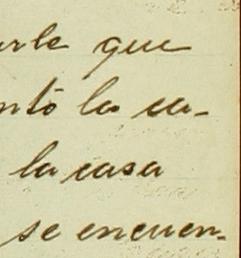 arle que
ntó la ca-
la casa
se encuen-